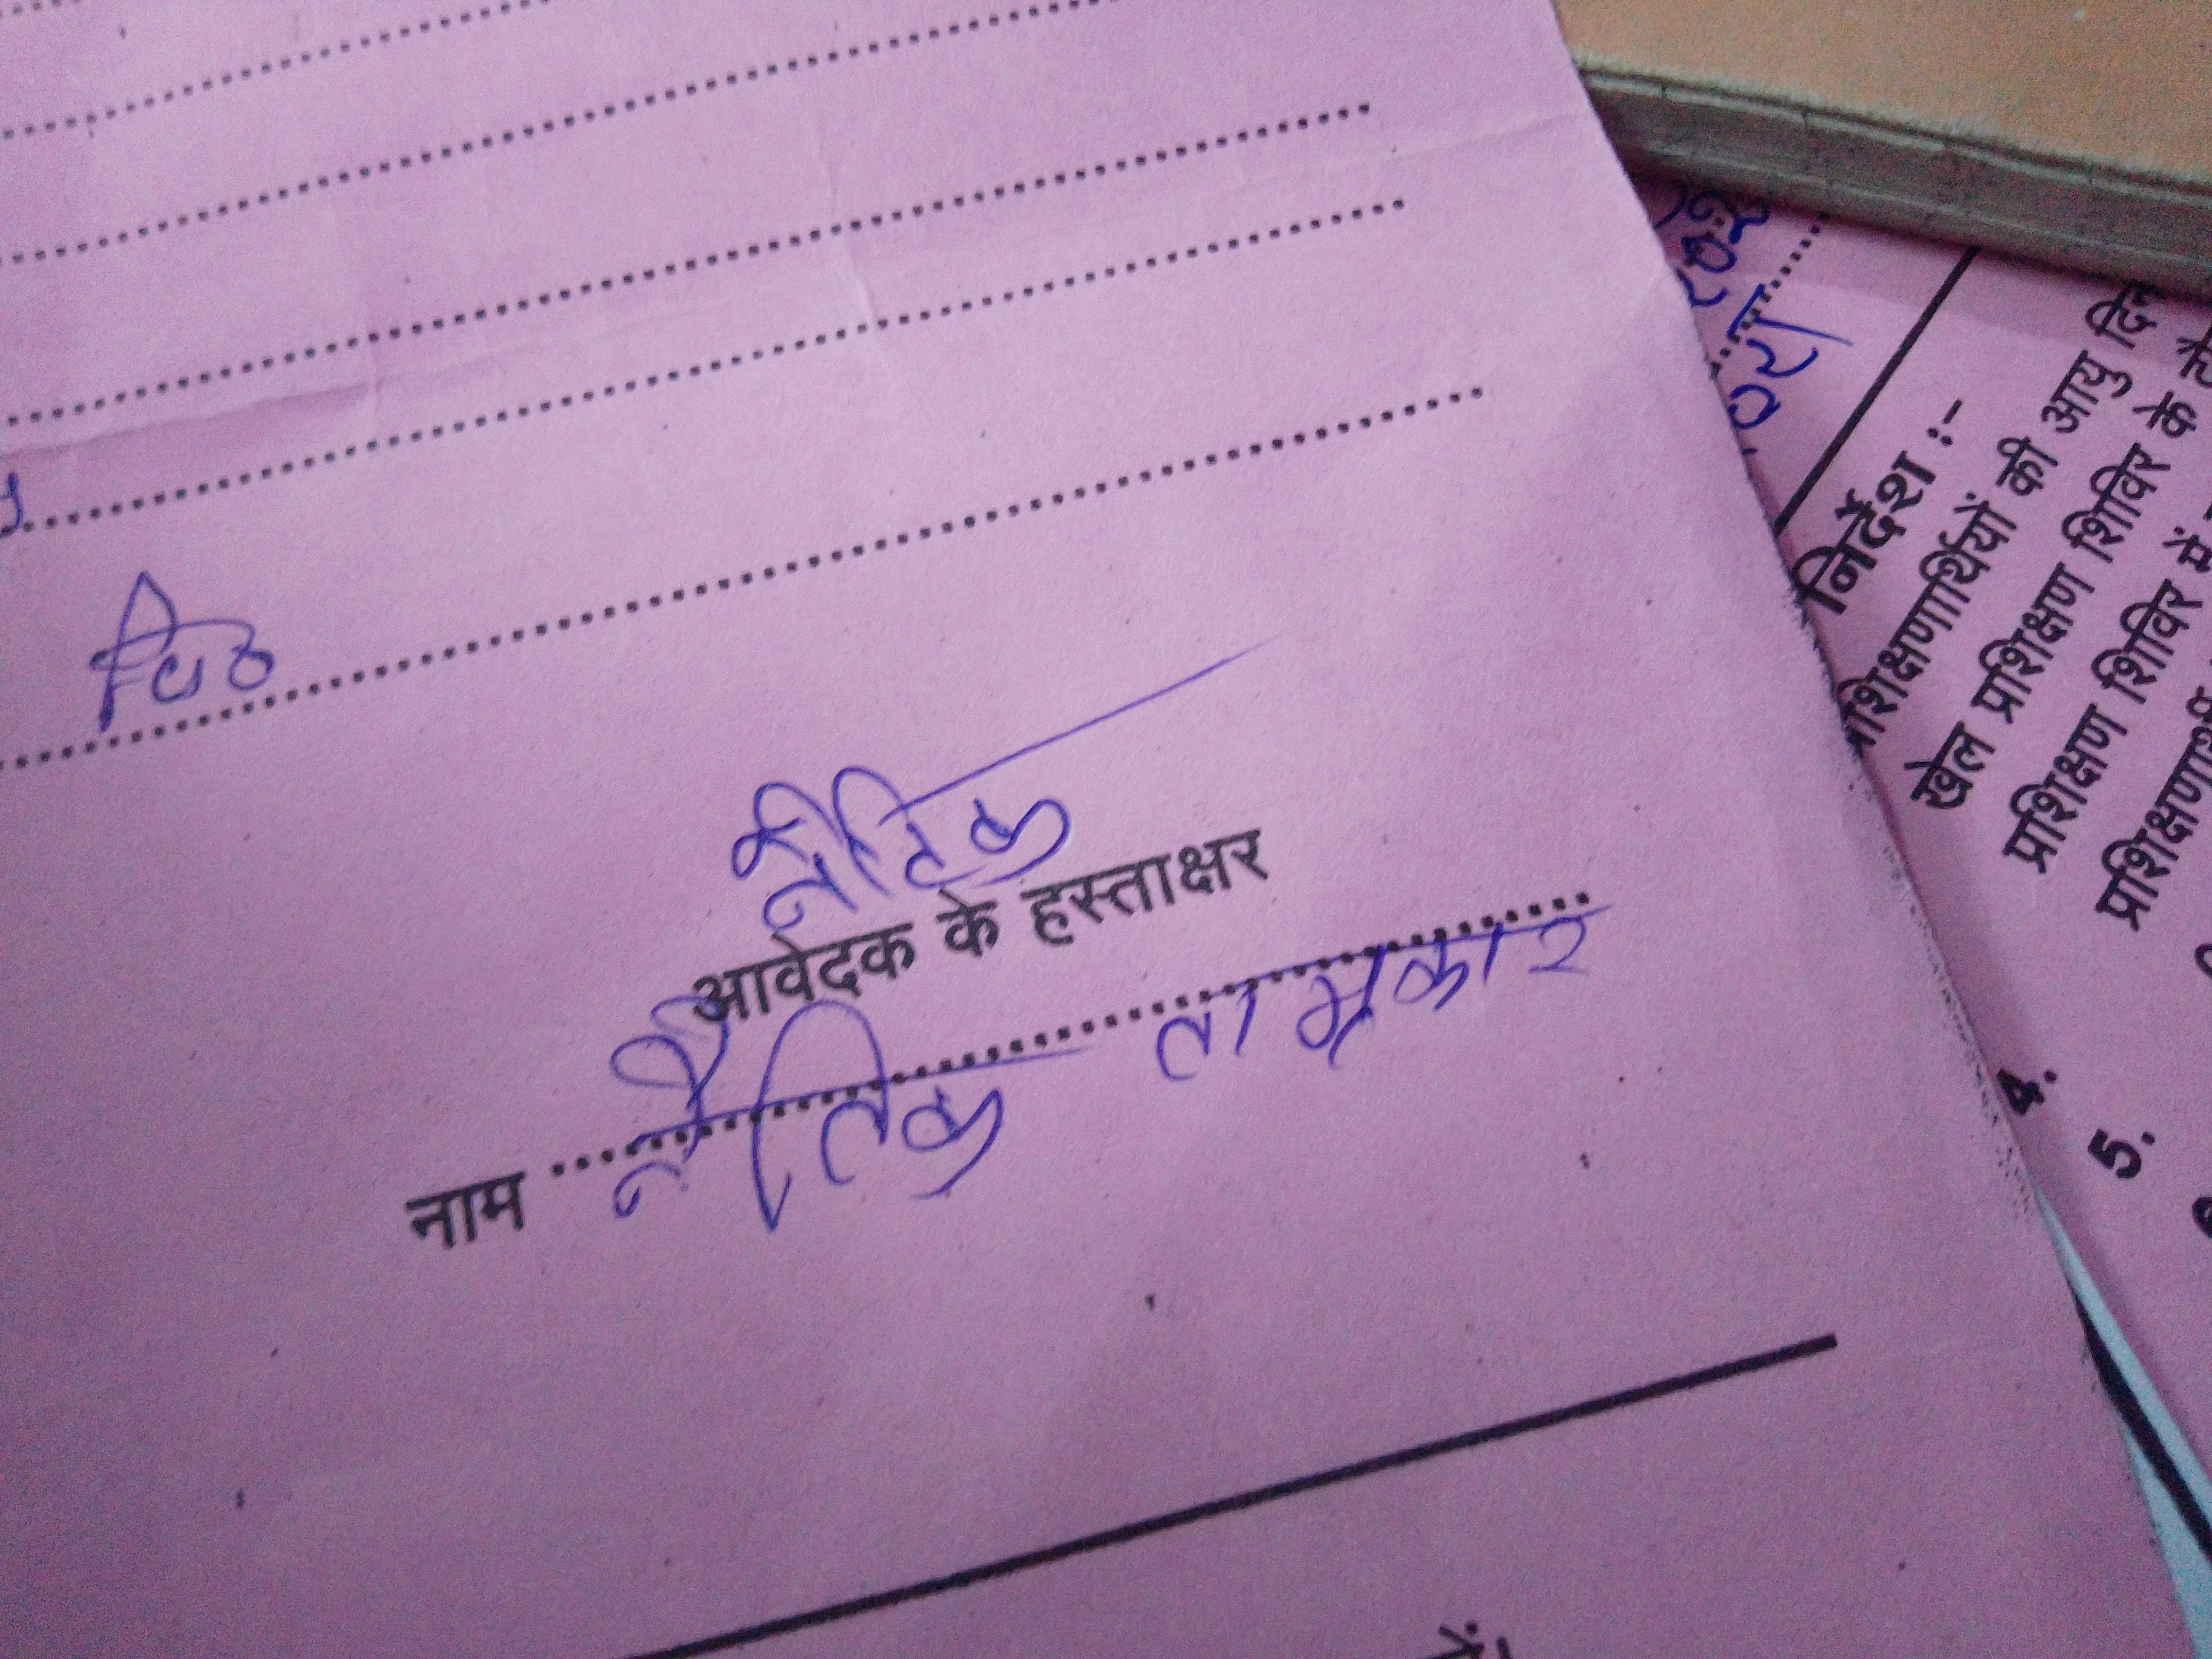 नैतिक
आवेदक के हस्ताक्षर
नाम नैतिक ताम्रकार
निर्देश :-
प्रशिक्षणार्थियों की आयु
खेल प्रशिक्षण शिविर के
प्रशिक्षण शिविर में
4.
5.